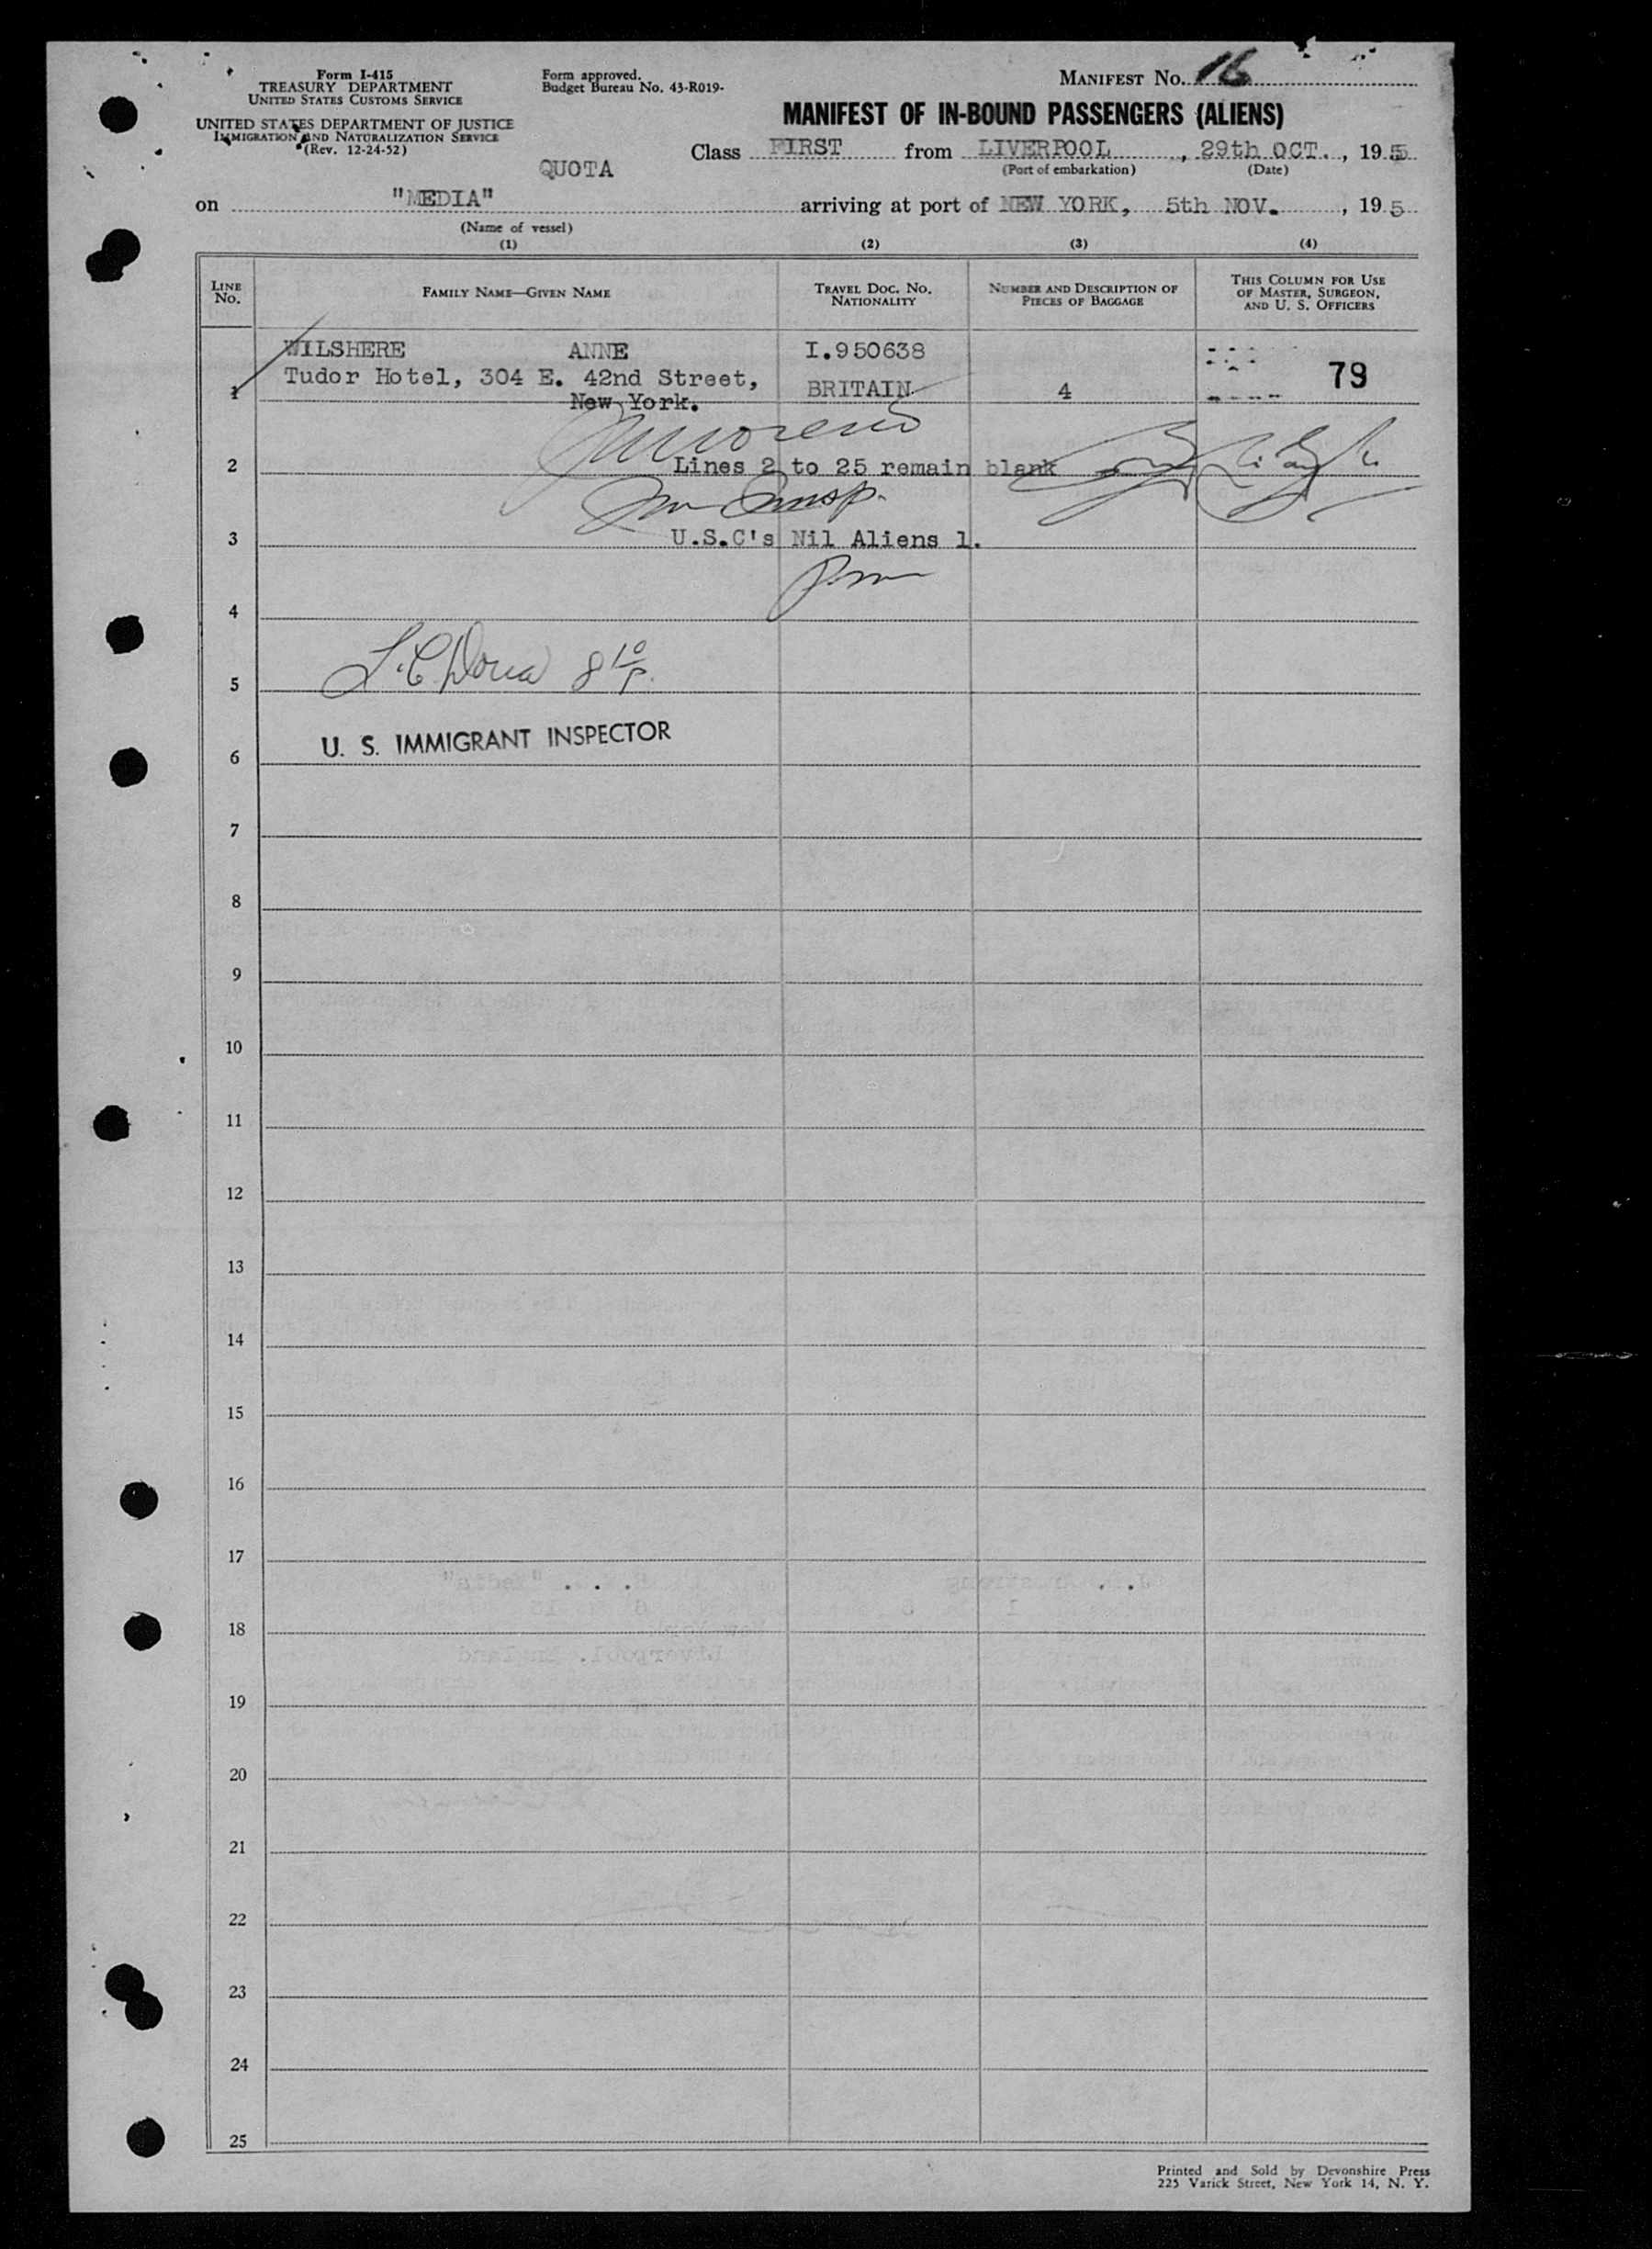 Form I-415
TREASURY DEPARTMENT
UNITED STATES CUSTOMS SERVICE
UNITED STATES DEPARTMENT OF JUSTICE
IMMIGRATION AND NATURALIZATION SERVICE
(Rev. 12-24-52)
Form approved.
Budget Bureau No. 43-R019-
MANIFEST NO. 16
MANIFEST OF IN-BOUND PASSENGERS (ALIENS)
Class FIRST from LIVERPOOL, 29th OCT., 195
(Port of embarkation) (Date)
QUOTA
on "MEDIA" arriving at port of NEW YORK, 5th NOV., 195
(Name of vessel)
(1) (2) (3) (4)
LINE NO.
FAMILY NAME—GIVEN NAME
TRAVEL DOC. NO. NATIONALITY
NUMBER AND DESCRIPTION OF PIECES OF BAGGAGE
THIS COLUMN FOR USE OF MASTER, SURGEON, AND U. S. OFFICERS
WILSHERE ANNE I.950638
Tudor Hotel, 304 E. 42nd Street, 79
1 New York. BRITAIN 4
2 Lines 2 to 25 remain blank
3 U.S.C's Nil Aliens 1.
4
5
U. S. IMMIGRANT INSPECTOR
6
7
8
9
10
11
12
13
14
15
16
17
18
19
20
21
22
23
24
25
Printed and Sold by Devonshire Press
225 Varick Street, New York 14, N. Y.